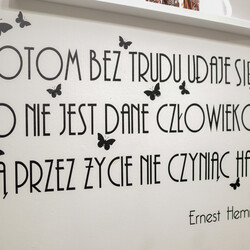 OTOM BEZ TRUDU UDAJE SIĘ
O NIE JEST DANE CZŁOWIEKO
Ą PRZEZ ŻYCIE NIE CZYNIĄC HA
Ernest Hem